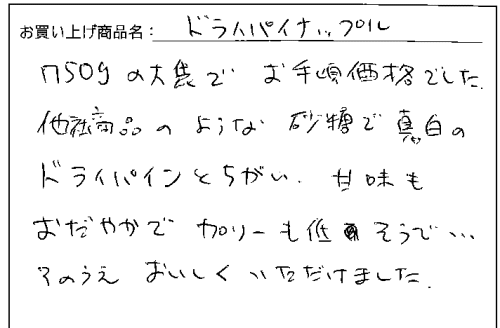 お買い上げ商品名: ドライパイナップル
750gの大袋で お手頃価格でした.
他社商品の ような 砂糖で真白の
ドライパインとちがい. 甘味も
おだやかで カロリーも低そうで…
そのうえ おいしくいただけました.